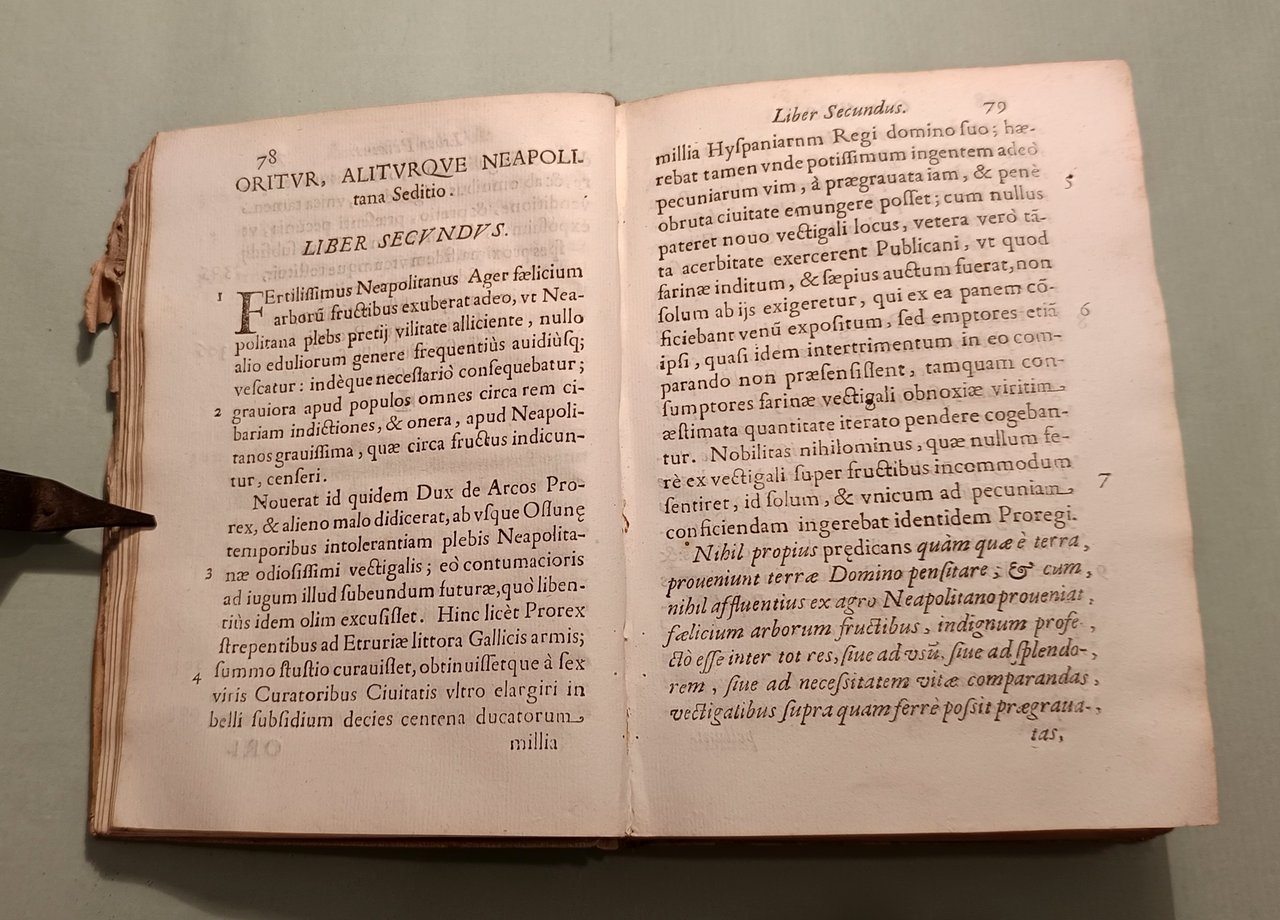 78
ORITVR, ALITVRQVE NEAPOLI-
tana Seditio.
LIBER SECVNDVS.
1 FErtiliſſimus Neapolitanus Ager fælicium
arborũ fructibus exuberat adeo, vt Nea-
politana plebs pretij vilitate alliciente, nullo
alio eduliorum genere frequentiùs auidiùſq;
veſcatur: indèque neceſſariò conſequebatur;
2 grauiora apud populos omnes circa rem ci-
bariam indictiones, & onera, apud Neapoli-
tanos grauiſſima, quæ circa fructus indicun-
tur, cenſeri.
Nouerat id quidem Dux de Arcos Pro-
rex, & alieno malo didicerat, ab vſque Oſſunę
temporibus intolerantiam plebis Neapolita-
3 næ odioſiſſimi vectigalis; eò contumacioris
ad iugum illud ſubeundum futuræ, quò liben-
tiùs idem olim excuſiſſet. Hinc licèt Prorex
ſtrepentibus ad Etruriæ littora Gallicis armis;
ſummo ſtuſtio curauiſſet, obtinuiſſetque à ſex
4 viris Curatoribus Ciuitatis vltro elargiri in
belli ſubſidium decies centena ducatorum
millia
Liber Secundus. 79
millia Hyſpaniarnm Regi domino ſuo; hæ-
rebat tamen vnde potiſſimum ingentem adeò
pecuniarum vim, à prægrauata iam, & penè 5
obruta ciuitate emungere poſſet; cum nullus
pateret nouo vectigali locus, vetera verò tā-
ta acerbitate exercerent Publicani, vt quod
farinæ inditum, & ſæpius auctum fuerat, non
ſolum ab ijs exigeretur, qui ex ea panem cō-
ficiebant venũ expoſitum, ſed emptores etiā 6
ipſi, quaſi idem intertrimentum in eo com-
parando non præſenſiſſent, tamquam con-
ſumptores farinæ vectigali obnoxiæ viritim
æſtimata quantitate iterato pendere cogeban-
tur. Nobilitas nihilominus, quæ nullum fe-
rè ex vectigali ſuper fructibus incommodum
ſentiret, id ſolum, & vnicum ad pecuniam 7
conficiendam ingerebat identidem Proregi.
Nihil propius prędicans quàm quæ è terra,
proueniunt terræ Domino penſitare; & cum,
nihil affluentius ex agro Neapolitano proueniat,
fælicium arborum fructibus, indignum profe-,
ctò eſſe inter tot res, ſiue ad vsũ, ſiue ad ſplendo-,
rem, ſiue ad neceſſitatem vitæ comparandas,
vectigalibus ſupra quam ferrè poſſit prægraua-,
tas,